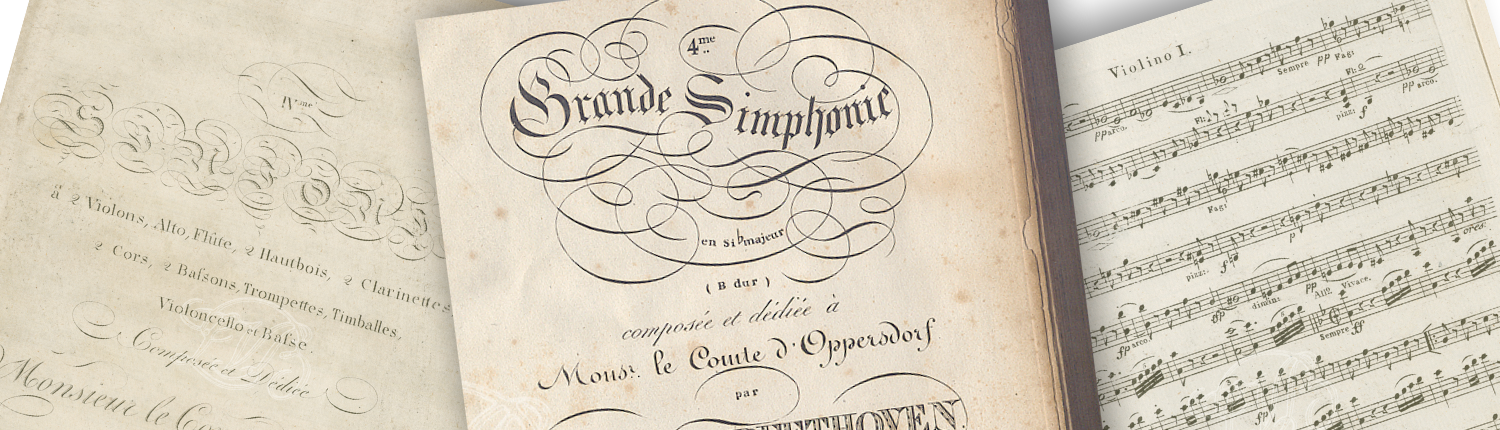 IVme
SINFONIE
à 2 Violons, Alto, Flûte, 2 Hautbois, 2 Clarinettes
2 Cors, 2 Bafsons, Trompettes, Timballes,
Violoncello et Bafse.
Composée et Dédiée
Monsieur le Co
4me
Grande Simphonie
en si♭majeur
( B dur )
composée et dédiée à
Monsr. le Comte d'Oppersdorf
par
BEETHOVEN.
Violino I.
Sempre pp Fag:
pp arco.
Fl:
Fl:
pizz: f
pp arco.
Fag:
p
cres:
pizz:. f
pp
Allo Vivace.
dimin:
fp
sempre ff
fp arco.
fp